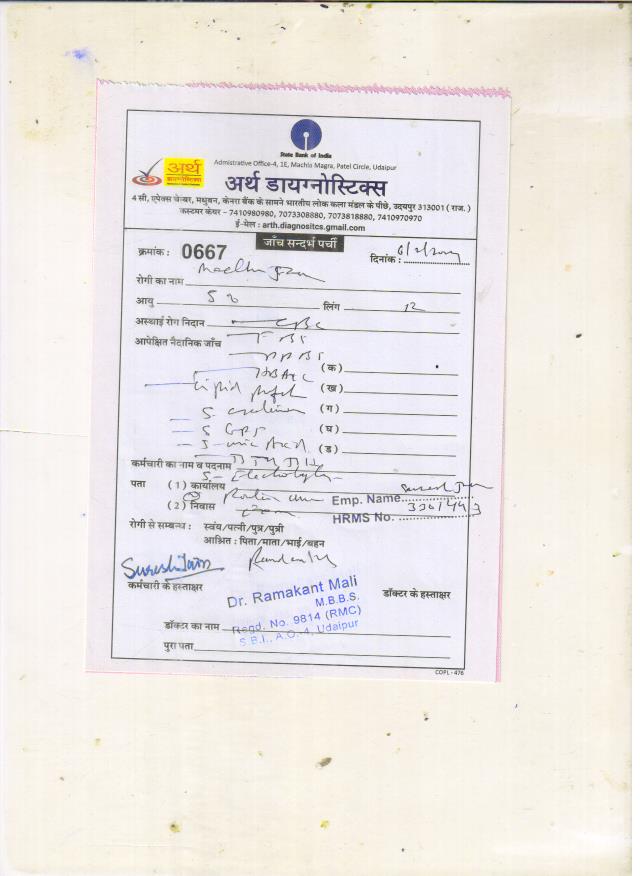 State Bank of India
Admistrative Office-4, 1E, Machla Magra, Patel Circle, Udaipur
अर्थ
डायग्नोस्टिक्स
अर्थ डायग्नोस्टिक्स
4 सी, एपेक्स चेम्बर, मधुबन, केनरा बैंक के सामने भारतीय लोक कला मंडल के पीछे, उदयपुर 313001 ( राज. )
कस्टमर केयर - 7410980980, 7073308880, 7073818880, 7410970970
ई-मेल : arth.diagnositcs.gmail.com
जाँच सन्दर्भ पर्ची
क्रमांक : 0667
दिनांक :
रोगी का नाम
आयु लिंग
अस्थाई रोग निदान CBC
आपेक्षित नैदानिक जाँच FBS
PPBS
HBA1C (क)
Lipid (ख)
S. (ग)
S GPT (घ)
S. uric Acid (ड)
कर्मचारी का नाम व पदनाम
S. Electrolytes
पता (1) कार्यालय Emp. Name
(2) निवास HRMS No.
रोगी से सम्बन्ध : स्वंय/पत्नी/पुत्र/पुत्री
आश्रित : पिता/माता/भाई/बहन
Suresh Jain
कर्मचारी के हस्ताक्षर
डॉक्टर के हस्ताक्षर
Dr. Ramakant Mali
M.B.B.S.
Regd. No. 9814 (RMC)
S.B.I., A.O.-4, Udaipur
डॉक्टर का नाम
पुरा पता
COPL - 476